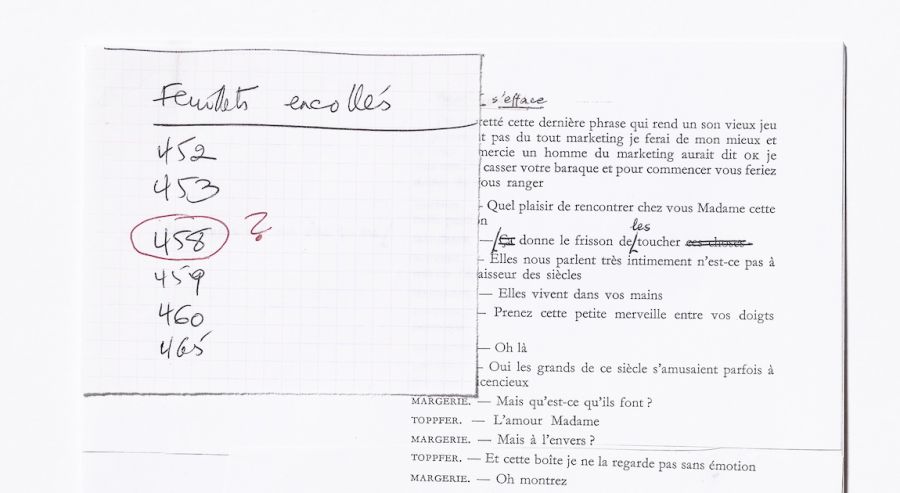 Feuillets encollés
452
453
458 ?
459
460
465
s'efface
etté cette dernière phrase qui rend un son vieux jeu
t pas du tout marketing je ferai de mon mieux et
mercie un homme du marketing aurait dit OK je
casser votre baraque et pour commencer vous feriez
ous ranger
— Quel plaisir de rencontrer chez vous Madame cette
n
les
— Ça donne le frisson de toucher ces choses
— Elles nous parlent très intimement n'est-ce pas à
aisseur des siècles
— Elles vivent dans vos mains
— Prenez cette petite merveille entre vos doigts
— Oh là
— Oui les grands de ce siècle s'amusaient parfois à
icencieux
MARGERIE. — Mais qu'est-ce qu'ils font ?
TOPPFER. — L'amour Madame
MARGERIE. — Mais à l'envers ?
TOPPFER. — Et cette boîte je ne la regarde pas sans émotion
MARGERIE. — Oh montrez